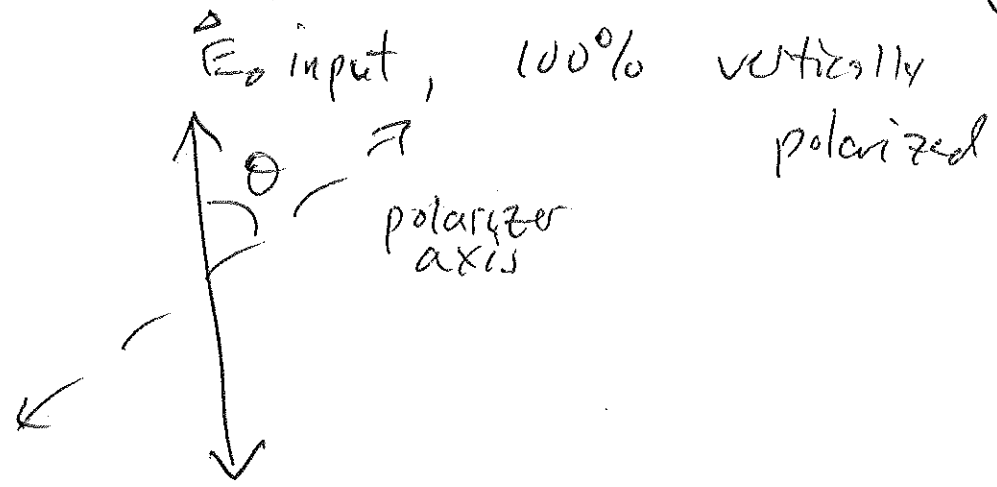 E₀ input, 100% vertically
polarized
θ
polarizer
axis